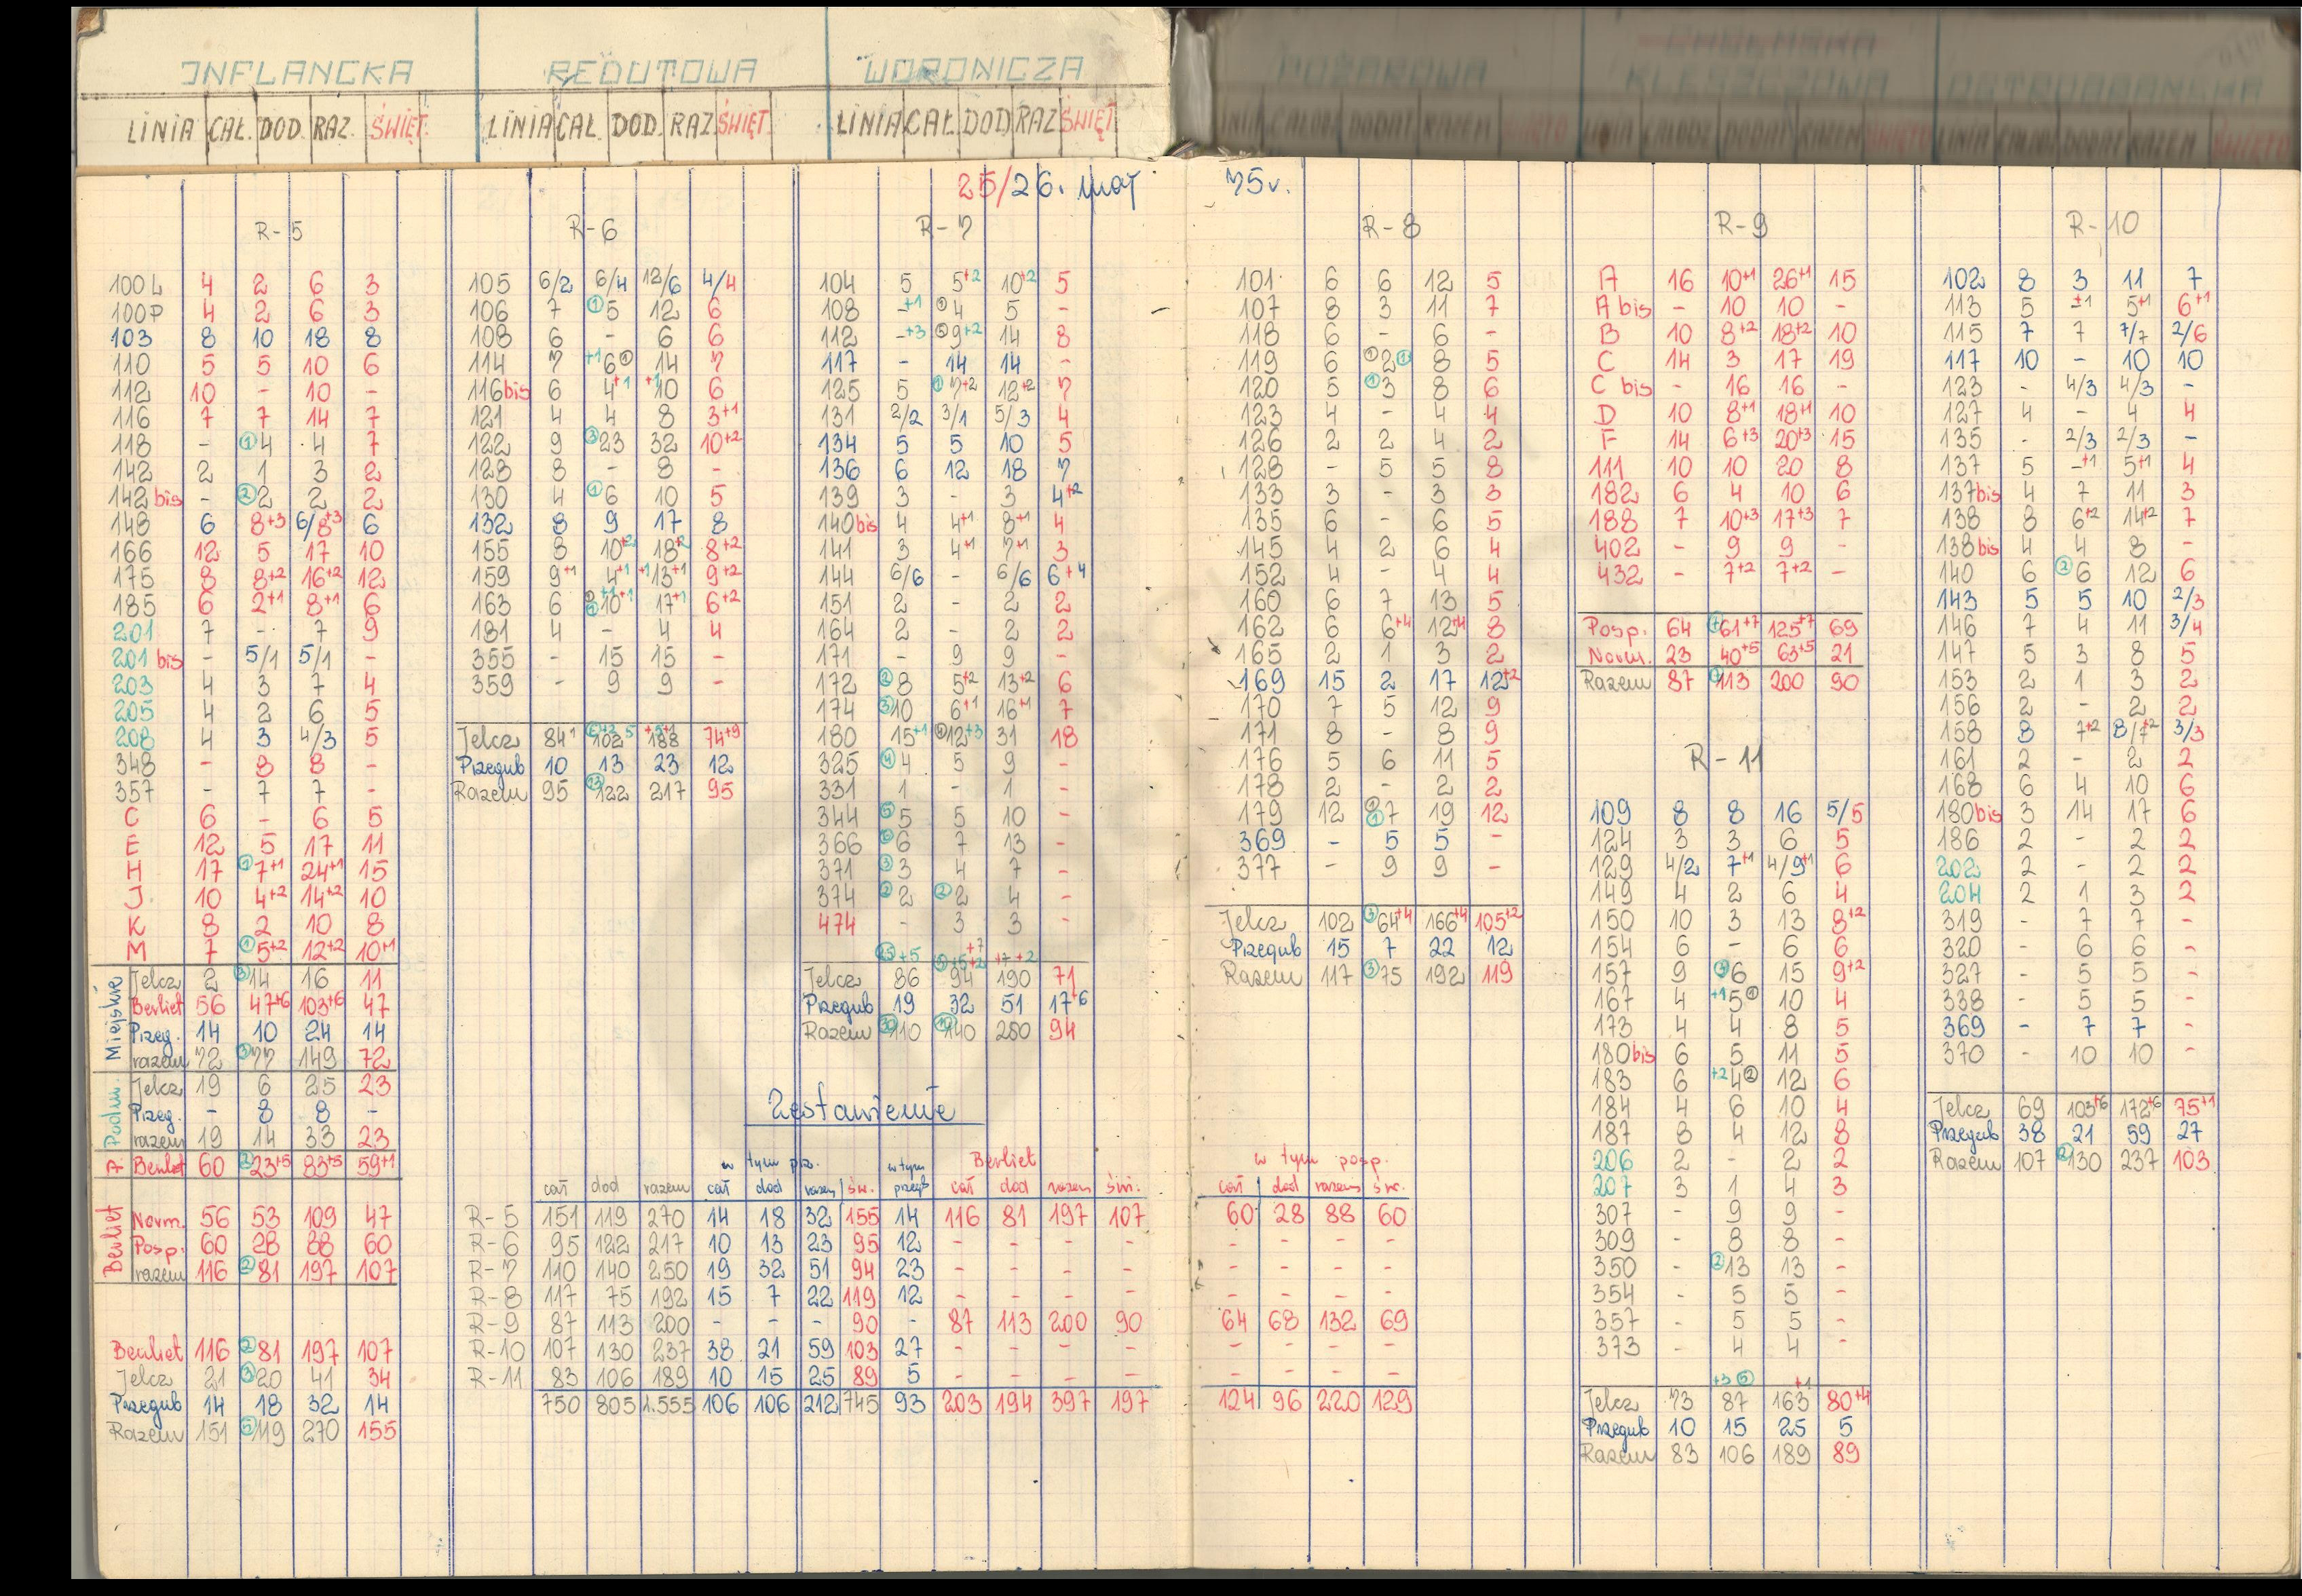 INFLANCKA REDUTOWA WORONICZA
LINIA CAŁ. DOD. RAZ. ŚWIĘT. LINIA CAŁ. DOD. RAZ. ŚWIĘT. LINIA CAŁ. DOD. RAZ. ŚWIĘT
KLESZCZOWA OSTROBRAMSKA
25/26. maj 75r.
R-5
100L 4 2 6 3
100P 4 2 6 3
103 8 10 18 8
110 5 5 10 6
112 10 - 10 -
116 7 7 14 7
118 - ①4 4 7
142 2 1 3 2
142 bis - ②2 2 2
148 6 8+3 6/8+3 6
166 12 5 17 10
175 8 8+2 16+2 12
185 6 2+1 8+1 6
201 7 - 7 9
201 bis - 5/1 5/1 -
203 4 3 7 4
205 4 2 6 5
208 4 3 4/3 5
348 - 8 8 -
357 - 7 7 -
C 6 - 6 5
E 12 5 17 11
H 17 ①7+1 24+1 15
J 10 4+2 14+2 10
K 8 2 10 8
M 7 ①5+2 12+2 10+1
Miejskie
Jelcz 2 ③14 16 11
Berliet 56 47+6 103+6 47
Przeg. 14 10 24 14
razem 72 ③77 149 72
Podm.
Jelcz 19 6 25 23
Przeg. - 8 8 -
razem 19 14 33 23
A Berliet 60 ②23+5 83+5 59+1
Berliet
Norm. 56 53 109 47
Posp. 60 28 88 60
razem 116 ②81 197 107
Berliet 116 ②81 197 107
Jelcz 21 ③20 41 34
Przegub 14 18 32 14
Razem 151 ⑤119 270 155
R-6
105 6/2 6/4 12/6 4/4
106 7 ①5 12 6
108 6 - 6 6
114 7 +1 6① 14 7
116bis 6 4+1 +1 10 6
121 4 4 8 3+1
122 9 ③23 32 10+2
128 8 - 8 -
130 4 ①6 10 5
132 8 9 17 8
155 8 10+2 18+2 8+2
159 9+1 4+1 +1 13+1 9+2
163 6 10+1 17+1 6+2
181 4 - 4 4
355 - 15 15 -
359 - 9 9 -
Jelcz 84 102 188 74+9
Przegub 10 13 23 12
Razem 95 ⑬122 217 95
R-7
104 5 5+2 10+2 5
108 -+1 ①4 5 -
112 -+3 9+2 14 8
117 - 14 14 -
125 5 ①7+2 12+2 7
131 2/2 3/1 5/3 4
134 5 5 10 5
136 6 12 18 7
139 3 - 3 4+2
140bis 4 4+1 8+1 4
141 3 4+1 7+1 3
144 6/6 - 6/6 6+4
151 2 - 2 2
164 2 - 2 2
171 - 9 9 -
172 ②8 5+2 13+2 6
174 ③10 6+1 16+1 7
180 15+1 12+3 31 18
325 ④4 5 9 -
331 1 - 1 -
344 ⑤5 5 10 -
366 ⑥6 7 13 -
371 ③3 4 7 -
374 ②2 ②2 4 -
474 - 3 3 -
Jelcz 86 94 190 71
Przegub 19 32 51 17+6
Razem 110 140 250 94
Zestawienie
w tym prz. w tym przegb Berliet w tym posp.
cał dod razem cał dod razem św. cał dod razem św. cał dod razem św.
R-5 151 119 270 14 18 32 155 14 116 81 197 107 60 28 88 60
R-6 95 122 217 10 13 23 95 12 - - - - - - - -
R-7 110 140 250 19 32 51 94 23 - - - - - - - -
R-8 117 75 192 15 7 22 119 12 - - - - - - - -
R-9 87 113 200 - - - 90 - 87 113 200 90 64 68 132 69
R-10 107 130 237 38 21 59 103 27 - - - - - - - -
R-11 83 106 189 10 15 25 89 5 - - - - - - - -
750 805 1.555 106 106 212 745 93 203 194 397 197 124 96 220 129
R-8
101 6 6 12 5
107 8 3 11 7
118 6 - 6 -
119 6 ①2① 8 5
120 5 ①3 8 6
123 4 - 4 4
126 2 2 4 2
128 - 5 5 8
133 3 - 3 3
135 6 - 6 5
145 4 2 6 4
152 4 - 4 4
160 6 7 13 5
162 6 6+4 12+4 8
165 2 1 3 2
169 15 2 17 12+2
170 7 5 12 9
171 8 - 8 9
176 5 6 11 5
178 2 - 2 2
179 12 7 19 12
369 - 5 5 -
377 - 9 9 -
Jelcz 102 ③64+4 166+4 105+2
Przegub 15 7 22 12
Razem 117 ③75 192 119
R-9
A 16 10+1 26+1 15
A bis - 10 10 -
B 10 8+2 18+2 10
C 14 3 17 19
C bis - 16 16 -
D 10 8+1 18+1 10
F 14 6+3 20+3 15
111 10 10 20 8
182 6 4 10 6
188 7 10+3 17+3 7
402 - 9 9 -
432 - 7+2 7+2 -
Posp. 64 61+7 125+7 69
Norm. 23 40+5 63+5 21
Razem 87 113 200 90
R-11
109 8 8 16 5/5
124 3 3 6 5
129 4/2 7+1 4/9+1 6
149 4 2 6 4
150 10 3 13 8+2
154 6 - 6 6
157 9 6 15 9+2
167 4 +1 5① 10 4
173 4 4 8 5
180bis 6 5 11 5
183 6 +2 4② 12 6
184 4 6 10 4
187 8 4 12 8
206 2 - 2 2
207 3 1 4 3
307 - 9 9 -
309 - 8 8 -
350 - ②13 13 -
354 - 5 5 -
357 - 5 5 -
373 - 4 4 -
+3 ⑤ +1
Jelcz 73 87 163 80+4
Przegub 10 15 25 5
Razem 83 106 189 89
R-10
102 8 3 11 7
113 5 -+1 5+1 6+1
115 7 7 7/7 2/6
117 10 - 10 10
123 - 4/3 4/3 -
127 4 - 4 4
135 - 2/3 2/3 -
137 5 -+1 5+1 4
137bis 4 7 11 3
138 8 6+2 14+2 7
138bis 4 4 8 -
140 6 ②6 12 6
143 5 5 10 2/3
146 7 4 11 3/4
147 5 3 8 5
153 2 1 3 2
156 2 - 2 2
158 8 7+2 8/7+2 3/3
161 2 - 2 2
168 6 4 10 6
180bis 3 14 17 6
186 2 - 2 2
202 2 - 2 2
204 2 1 3 2
319 - 7 7 -
320 - 6 6 -
327 - 5 5 -
338 - 5 5 -
369 - 7 7 -
370 - 10 10 -
Jelcz 69 103+6 172+6 75+1
Przegub 38 21 59 27
Razem 107 ②130 237 103